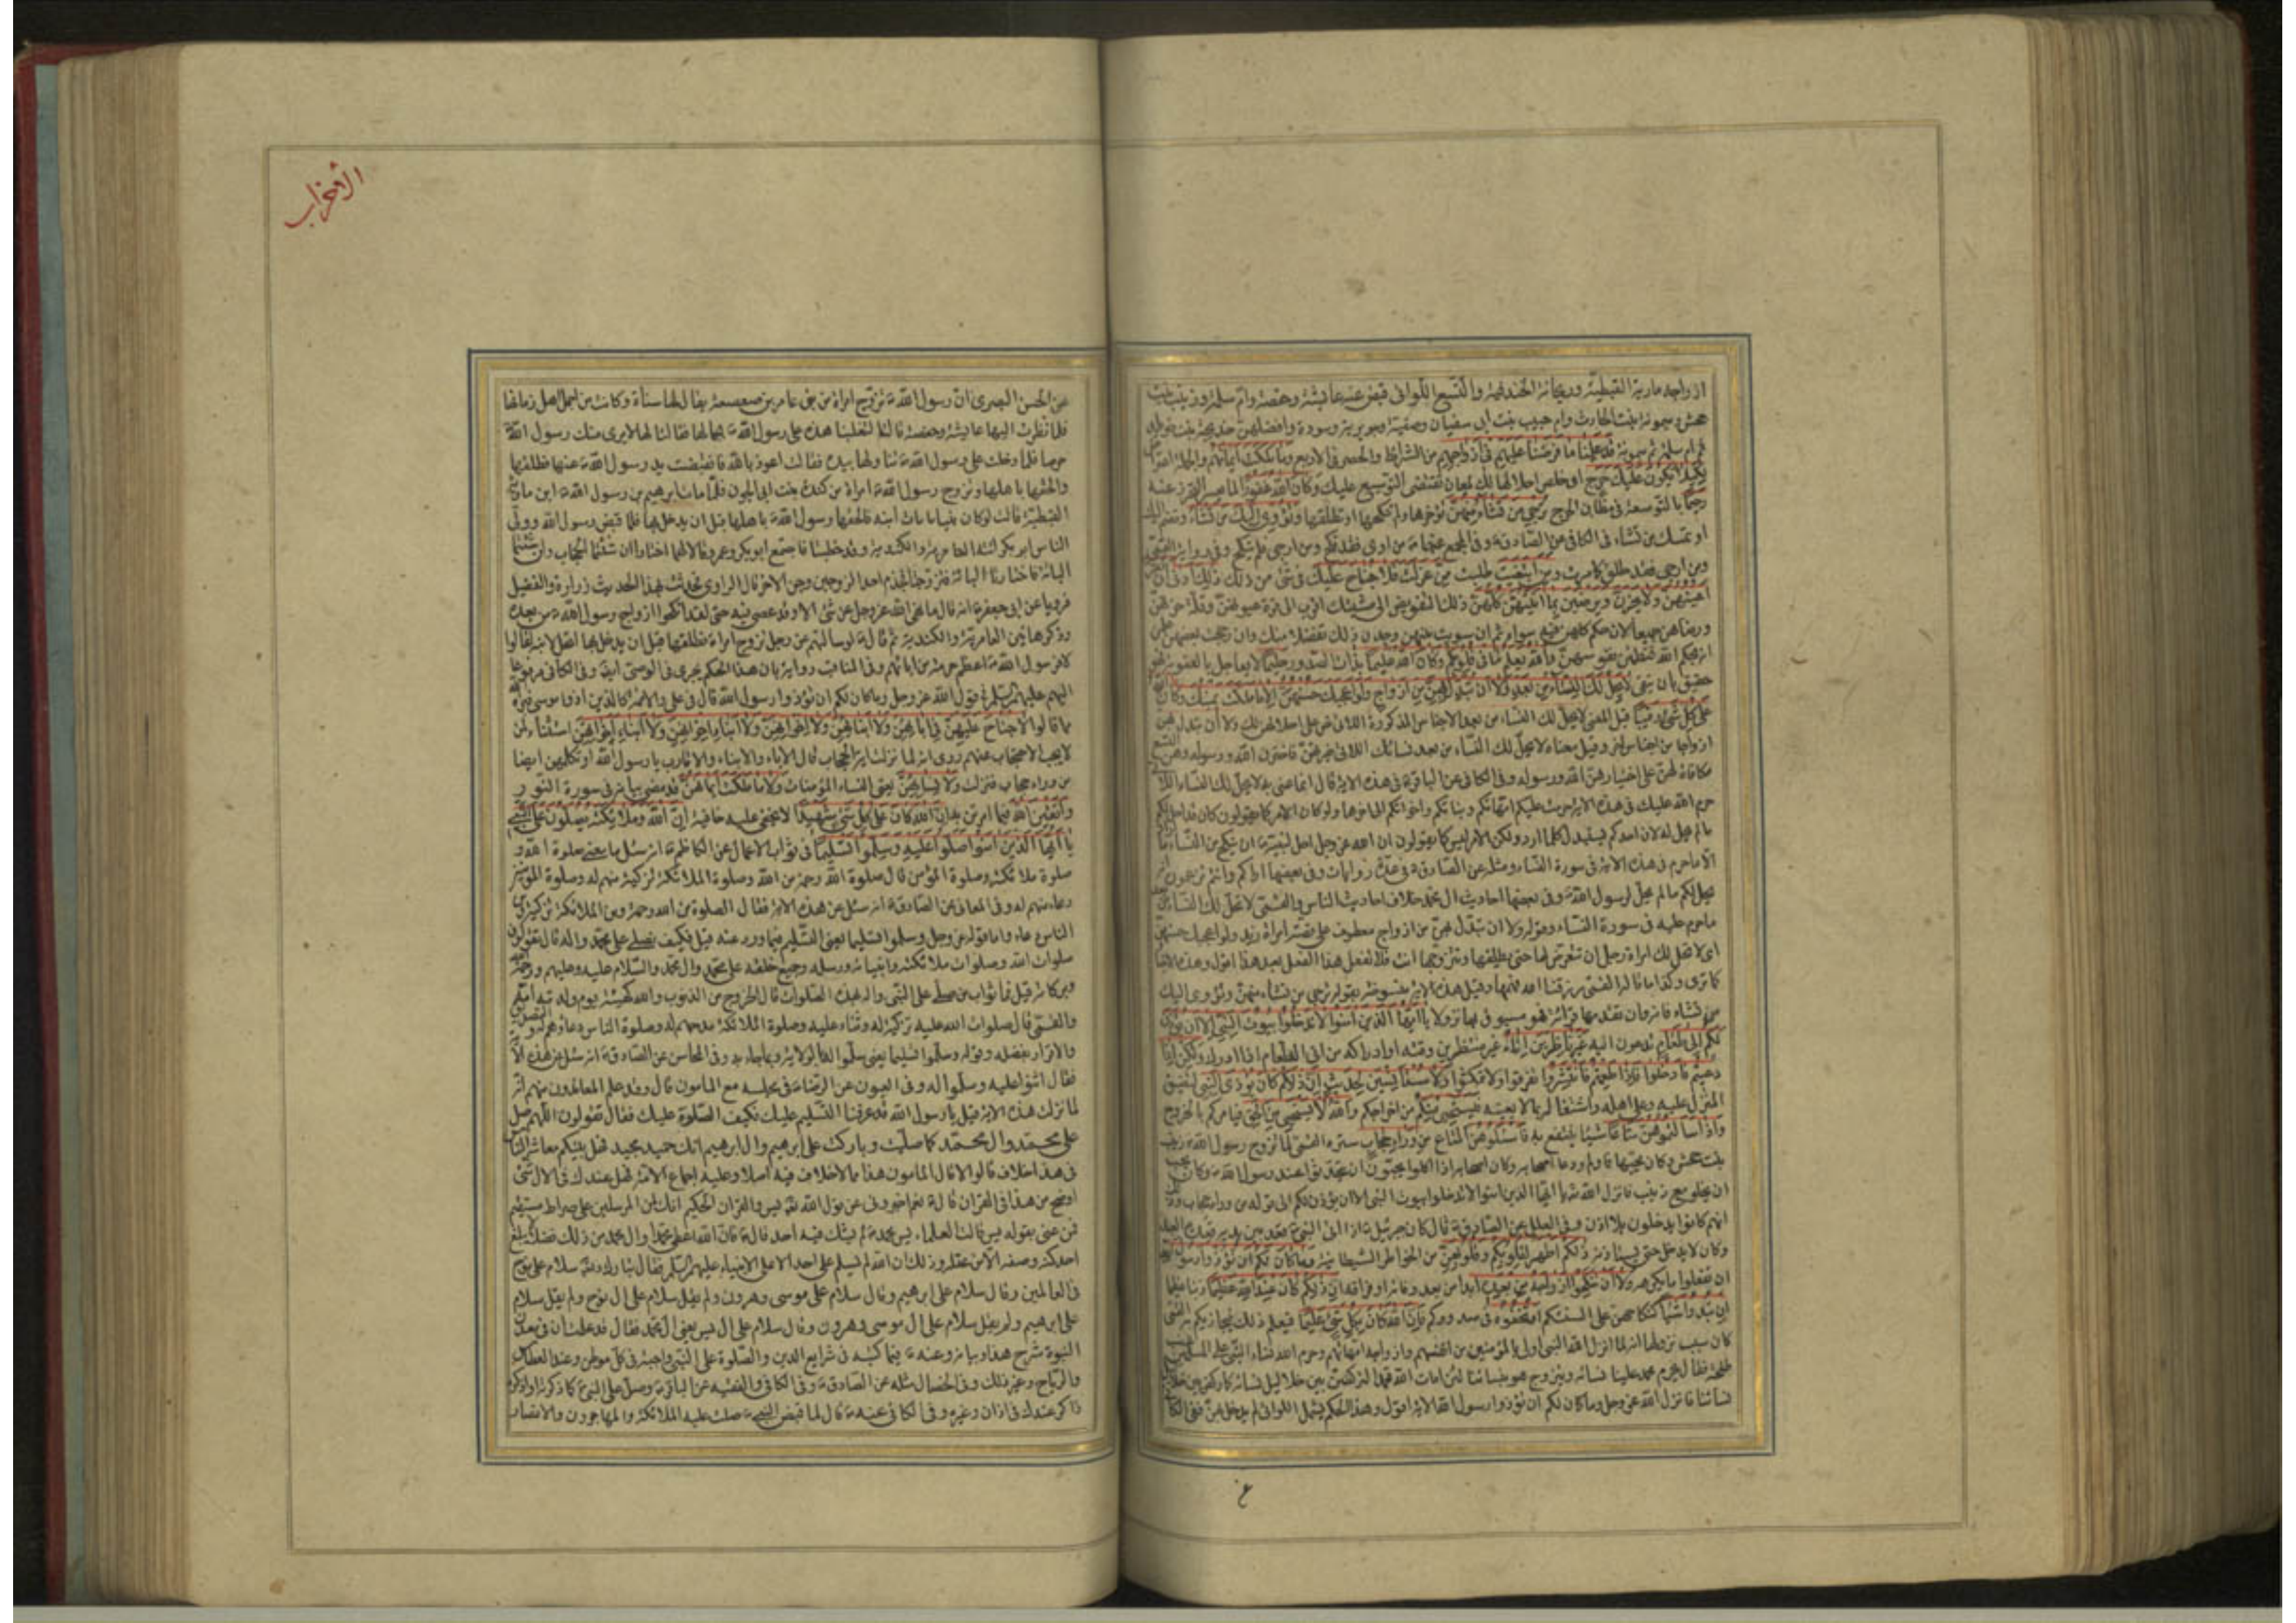 ازواجه مارية القبطيّة وريحانة الخندفيّة والتّسع اللّواتى قبض عنهنّ عايشة وحفصة وامّ سلمة وزينب بنت
جحش وميمونة بنت الحارث وام حبيب بنت ابى سفيان وصفيّة وجويرية وسودة وافضلهنّ خديجة بنت خويلد
ثم ام سلمة ثم ميمونة قد علمنا ما فرضنا عليهم فى ازواجهم من الشرايط والحصر فى الاربع وما ملكت ايمانهم والجملة اعتراض
لكيلا يكون عليك حرج او خلص احلالها لك لمعان تقتضى التوسيع عليك وكان الله غفورا لما يعسر التحرز عنه
رحيما بالتوسعة فى مظانّ الحرج ترجى من تشاء منهنّ تؤخرها ولم تنكحها او تطلقها وتؤوى اليك من تشاء وتضم اليك
او تمسك من تشاء فى الكافى عن الصّادق ع وفى المجمع عنهما ع من اوى فقد نكح ومن ارجى فلم ينكح وفى رواية القمّى
ومن ارجى فقد طلق ومن ابتغيت طلبت ممن عزلت فلا جناح عليك فى شئ من ذلك ذلك ادنى ان تقرّ
اعينهنّ ولا يحزنّ ويرضين بما اتيتهنّ كلّهنّ ذلك التفويض الى مشيتك اقرب الى قرة عيونهنّ وقلّة حزنهنّ
ورضاهنّ جميعا لان حكم كلهنّ فيه سواء ثم ان سويت بينهن وجدن ذلك تفضلا منك وان رجّحت بعضهن علمن
انه بحكم الله فتطمئن نفوسهنّ والله يعلم ما فى قلوبكم وكان الله عليما بذات الصّدور حليما لا يعاجل بالعقوبة فهو
حقيق بان يتقى لا يحلّ لك النّساء من بعد ولا ان تبدّل بهنّ من ازواج ولو اعجبك حسنهنّ الا ما ملكت يمينك وكان الله
على كل شئ رقيبا قيل المعنى لا يحلّ لك النّساء من بعد الاجناس المذكورة اللاتى نص على احلالهن لك ولا ان تبدل بهن
ازواجا من اجناس اخر وقيل معناه لا يحلّ لك النّساء من بعد نسائك اللاتى خيرتهنّ فاخترن الله ورسوله وهن التسع
مكافاة لهنّ على اختيارهنّ الله ورسوله وفى الكافى عن الباقر ع فى هذه الاية قال انما عنى به لا يحلّ لك النساء اللاتى
حرم الله عليك فى هذه الاية حرمت عليكم امهاتكم وبناتكم واخواتكم الى اخرها ولو كان الامر كما يقولون كان قد احل لكم
ما لم يحل له لان احدكم يستبدل كلما اراد ولكن الامر ليس كما يقولون ان الله عز وجل احل لنبيّه ان ينكح من النّساء ما اراد
الّا ما حرم فى هذه الاية فى سورة النّساء ومثله عن الصّادق ع فى عدّة روايات وفى بعضها اراكم وانتم تزعمون انه
يحل لكم ما لم يحلّ لرسول الله ص وفى بعضها احاديث ال محمّد خلاف احاديث الناس والقمّى لا تحلّ لك النساء من بعد
ما حرم عليه فى سورة النّساء وقوله ولا ان تبدّل بهنّ من ازواج معطوف على قصّة امراة زيد ولو اعجبك حسنهنّ
اى لا تحل لك امراة رجل ان تتعرّض لها حتى يطلقها وتتزوّجها انت فلا تفعل هذا الفعل بعد هذا اقول وهذه الاخبار
كما ترى وكذا ما قاله القمّى رزقنا الله فهمها وقيل هذه الاية منسوخة بقوله ترجى من تشاء منهنّ وتؤوى اليك
من تشاء فانه وان تقدمها قراءة فهو مسبوق بها نزولا يا ايّها الّذين امنوا لا تدخلوا بيوت النبى الا ان يؤذن
لكم الى طعام تدعون اليه غير ناظرين اناه غير منتظرين وقته او ادراكه من انى الطعام اذا ادرك ولكن اذا
دعيتم فادخلوا فاذا طعمتم فانتشروا تفرقوا ولا تمكثوا ولا مستانسين لحديث ان ذلكم كان يؤذى النبى لتضييق
المنزل عليه وعلى اهله واشتغاله بما لا يعنيه فيستحيى منكم من اخراجكم والله لا يستحيى من الحق فيامركم بالخروج
واذا سالتموهن متاعا شيئا ينتفع به فاسئلوهنّ المتاع من وراء حجاب ستر القمّى لما تزوج رسول الله ص زينب
بنت جحش وكان يحبّها فاولم ودعا اصحابه وكان اصحابه اذا اكلوا يحبّون ان يتحدثوا عند رسول الله ص وكان يحب
ان يخلو مع زينب فانزل الله تع يا ايّها الّذين امنوا لا تدخلوا بيوت النبى الا ان يؤذن لكم الى قوله من وراء حجاب وذلك
انهم كانوا يدخلون بلا اذن وفى العلل عن الصّادق ع قال كان جبرئيل ع اذا اتى النبىّ ص قعد بين يديه قعدة العبد
وكان لا يدخل حتى يستاذنه ذلكم اطهر لقلوبكم وقلوبهنّ من الخواطر الشيطانيّة وما كان لكم ان تؤذوا رسول الله
ان تفعلوا ما يكرهه ولا ان تنكحوا ازواجه من بعده ابدا من بعد وفاته او فراقه انّ ذلكم كان عند الله عظيما ذنبا عظيما
ان تبدوا شيئا كنكاحهنّ على السنتكم او تخفوه فى صدوركم فانّ الله كان بكل شئ عليما فيعلم ذلك فيجازيكم به القمّى
كان سبب نزولها انه لما انزل الله النبى اولى بالمؤمنين من انفسهم وازواجه امّهاتهم وحرم الله نساء النبىّ على المسلمين غضب
طلحة فقال يحرم محمد علينا نسائه ويتزوج هو بنسائنا لئن امات الله محمّدا لنركضنّ بين خلاخيل نسائه كما ركض بين خلاخيل
نسائنا فانزل الله عز وجل وما كان لكم ان تؤذوا رسول الله الاية اقول وهذا الحكم يشمل اللواتى لم يدخل بهنّ ففى الكافى
الأحزاب
عن الحسن البصرى ان رسول الله ص تزوج امراة من بنى عامر بن صعصعة يقال لها سناة وكانت من اجمل اهل زمانها
فلما نظرت اليها عايشة وحفصة قالتا لتغلبنا هذه على رسول الله ص بجمالها فقالتا لها لا يرى منك رسول الله ص
حرصا فلما دخلت على رسول الله ص تناولها بيده فقالت اعوذ بالله فانقبضت يد رسول الله ص عنها فطلقها
والحقها باهلها وتزوج رسول الله ص امراة من كندة بنت ابى الجون فلمّا مات ابرهيم بن رسول الله ص ابن مارية
القبطيّة قالت لو كان نبيا ما مات ابنه فالحقها رسول الله ص باهلها قبل ان يدخل بها فلما قبض رسول الله وولّى
الناس ابو بكر اتته العامريّة والكنديّة وقد خطبتا فاجتمع ابو بكر وعمر وقالا لهما اختارا ان شئتما الحجاب وان شئتما
الباه فاختارتا الباه فتزوجتا فجذم احد الرجلين وجنّ الاخر قال الراوى فحدثت بهذا الحديث زرارة والفضيل
فرويا عن ابى جعفر ع انه قال ما نهى الله عز وجل عن شئ الا وقد عصى فيه حتى لقد انكحوا ازواج رسول الله ص من بعده
وذكر هاتين العامريّة والكندية ثم قال ع لو سالتهم عن رجل تزوج امراة فطلقها قبل ان يدخل بها اتحل لابنه لقالوا
لا فرسول الله ص اعظم حرمة من ابائهم وفى المناقب رواية بان هذا الحكم يجرى فى الوصىّ ايضا وفى الكافى مرفوعا
اليهم عليهم السّلم فى قول الله عز وجل وما كان لكم ان تؤذوا رسول الله قال فى علىّ والائمة كالذين اذوا موسى فبرّاه الله
مما قالوا لا جناح عليهنّ فى ابائهنّ ولا ابنائهنّ ولا اخوانهنّ ولا ابناء اخوانهنّ ولا ابناء اخواتهنّ استثناء لمن
لا يجب الاحتجاب عنهم روى انه لما نزلت اية الحجاب قال الاباء والابناء والاقارب يا رسول الله او نكلمهن ايضا
من وراء حجاب فنزلت ولا نسائهنّ يعنى النساء المؤمنات ولا ما ملكت ايمانهنّ قد مضى بيانه فى سورة النّور
واتّقين الله فيما امرتن به انّ الله كان على كل شئ شهيدا لا يخفى عليه خافية انّ الله وملائكته يصلّون على النّبى
يا ايّها الّذين امنوا صلوا عليه وسلموا تسليما فى ثواب الاعمال عن الكاظم ع انه سئل ما معنى صلوة الله و
صلوة ملائكته وصلوة المؤمن قال صلوة الله رحمة من الله وصلوة الملائكة تزكية منهم له وصلوة المؤمنين
دعاء منهم له وفى المعانى عن الصّادق ع انه سئل عن هذه الاية فقال الصلوة من الله رحمة ومن الملائكة تزكية ومن
الناس دعاء واما قوله عز وجل وسلموا تسليما يعنى التّسليم فيما ورد عنه قيل فكيف نصلى على محمّد واله قال تقولون
صلوات الله وصلوات ملائكته وانبيائه ورسله وجميع خلقه على محمّد وال محمّد والسّلام عليه وعليهم ورحمة الله
وبركاته قيل فما ثواب من صلّى على النّبى واله بهذه الصّلوات قال الخروج من الذنوب والله كهيئته يوم ولدته امّه
والقمّى قال صلوات الله عليه تزكية له وثناء عليه وصلوة الملائكة مدحهم له وصلوة الناس دعاؤهم له والتصديق
والاقرار بفضله وقوله وسلّموا تسليما يعنى سلّموا له بالولاية وبما جاء به وفى المحاسن عن الصّادق ع انه سئل عن هذه الاية
فقال اثنوا عليه وسلّموا له وفى العيون عن الرضا ع فى مجلسه مع المامون قال وقد علم المعاندون منهم انه
لما نزلت هذه الاية قيل يا رسول الله قد عرفنا التّسليم عليك فكيف الصّلوة عليك فقال تقولون اللّهم صل
على محمّد وال محمّد كما صلّيت وباركت على ابرهيم وال ابرهيم انك حميد مجيد فهل بينكم معاشر الناس
فى هذا خلاف قالوا لا قال المامون هذا ما لا خلاف فيه اصلا وعليه اجماع الامّة فهل عندك فى الال شئ
اوضح من هذا فى القران قال ع نعم اخبرونى عن قول الله تع يس والقران الحكيم انك لمن المرسلين على صراط مستقيم
فمن عنى بقوله يس قالت العلماء يس محمد ص لم يشك فيه احد قال ع فانّ الله اعطى محمّدا وال محمد من ذلك فضلا لا يبلغ
احد كنه وصفه الا من عقله وذلك ان الله لم يسلم على احد الا على الانبياء عليهم السّلم فقال تبارك وتع سلام على نوح
فى العالمين وقال سلام على ابرهيم وقال سلام على موسى وهرون ولم يقل سلام على ال نوح ولم يقل سلام
على ابرهيم ولم يقل سلام على ال موسى وهرون وقال سلام على ال يس يعنى ال محمّد فقال قد علمت ان فى معدن
النبوة شرح هذا وبيانه وعنه ع فيما كتبه فى شرايع الدين والصّلوة على النّبى واجبة فى كل موطن وعند العطاس
والرّياح وغير ذلك وفى الخصال مثله عن الصّادق ع وفى الكافى والفقيه عن الباقر ع وصلّ على النبىّ كلما ذكرته او ذكره
ذاكر عندك فى اذان وغيره وفى الكافى عنه ع قال لما قبض النبى ص صلت عليه الملائكة والمهاجرون والانصار